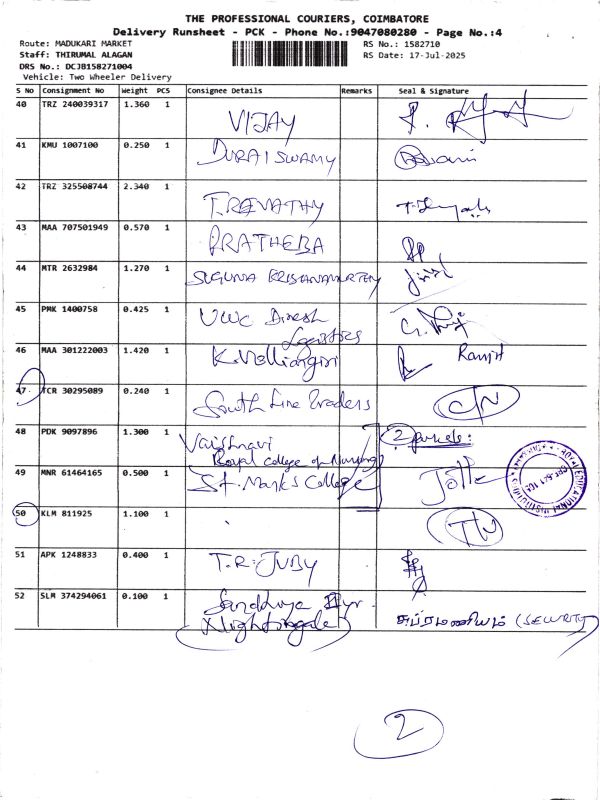 THE PROFESSIONAL COURIERS, COIMBATORE
Delivery Runsheet - PCK - Phone No.:9047080280 - Page No.:4
Route: MADUKARI MARKET
RS No.: 1582710
Staff: THIRUMAL ALAGAN
RS Date: 17-Jul-2025
DRS No.: DCJB158271004
Vehicle: Two Wheeler Delivery
S No Consignment No Weight PCS Consignee Details Remarks Seal & Signature
40 TRZ 240039317 1.360 1 VIJAY
41 KMU 1007100 0.250 1 DURAISWAMY
42 TRZ 325508744 2.340 1 T.REVATHY
43 MAA 707501949 0.570 1 PRATHEBA
44 MTR 2632984 1.270 1 SUGUNA KRISHNAMURTHY
45 PMK 1400758 0.425 1 UWC Dinesh
Logistics
46 MAA 301222003 1.420 1 K.Velliangiri Ranjit
47 TCR 30295089 0.240 1 South Line Traders
48 PDK 9097896 1.300 1 Vaishnavi 2 parcels:
Royal College of Nursing
49 MNR 61464165 0.500 1 St. Marks College
50 KLM 811925 1.100 1
51 APK 1248833 0.400 1 T.R. JUBY
52 SLM 374294061 0.100 1 Sandhya
Nightingale சுப்ரமணியம் (SECURITY)
2